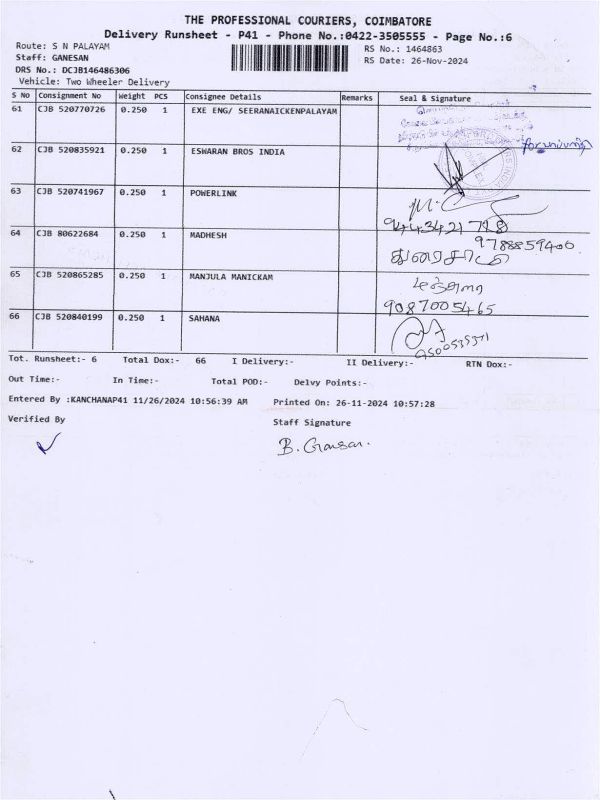 THE PROFESSIONAL COURIERS, COIMBATORE
Delivery Runsheet - P41 - Phone No.:0422-3505555 - Page No.:6
Route: S N PALAYAM
RS No.: 1464863
Staff: GANESAN
RS Date: 26-Nov-2024
DRS No.: DCJB146486306
Vehicle: Two Wheeler Delivery
S No Consignment No Weight PCS Consignee Details Remarks Seal & Signature
61 CJB 520770726 0.250 1 EXE ENG/ SEERANAICKENPALAYAM
62 CJB 520835921 0.250 1 ESWARAN BROS INDIA
63 CJB 520741967 0.250 1 POWERLINK
9443421718
64 CJB 80622684 0.250 1 MADHESH 9788859400
துரைசாமி
65 CJB 520865285 0.250 1 MANJULA MANICKAM
9087005465
66 CJB 520840199 0.250 1 SAHANA
Tot. Runsheet:- 6 Total Dox:- 66 I Delivery:- II Delivery:- RTN Dox:-
Out Time:- In Time:- Total POD:- Delvy Points:-
Entered By :KANCHANAP41 11/26/2024 10:56:39 AM Printed On: 26-11-2024 10:57:28
Verified By Staff Signature